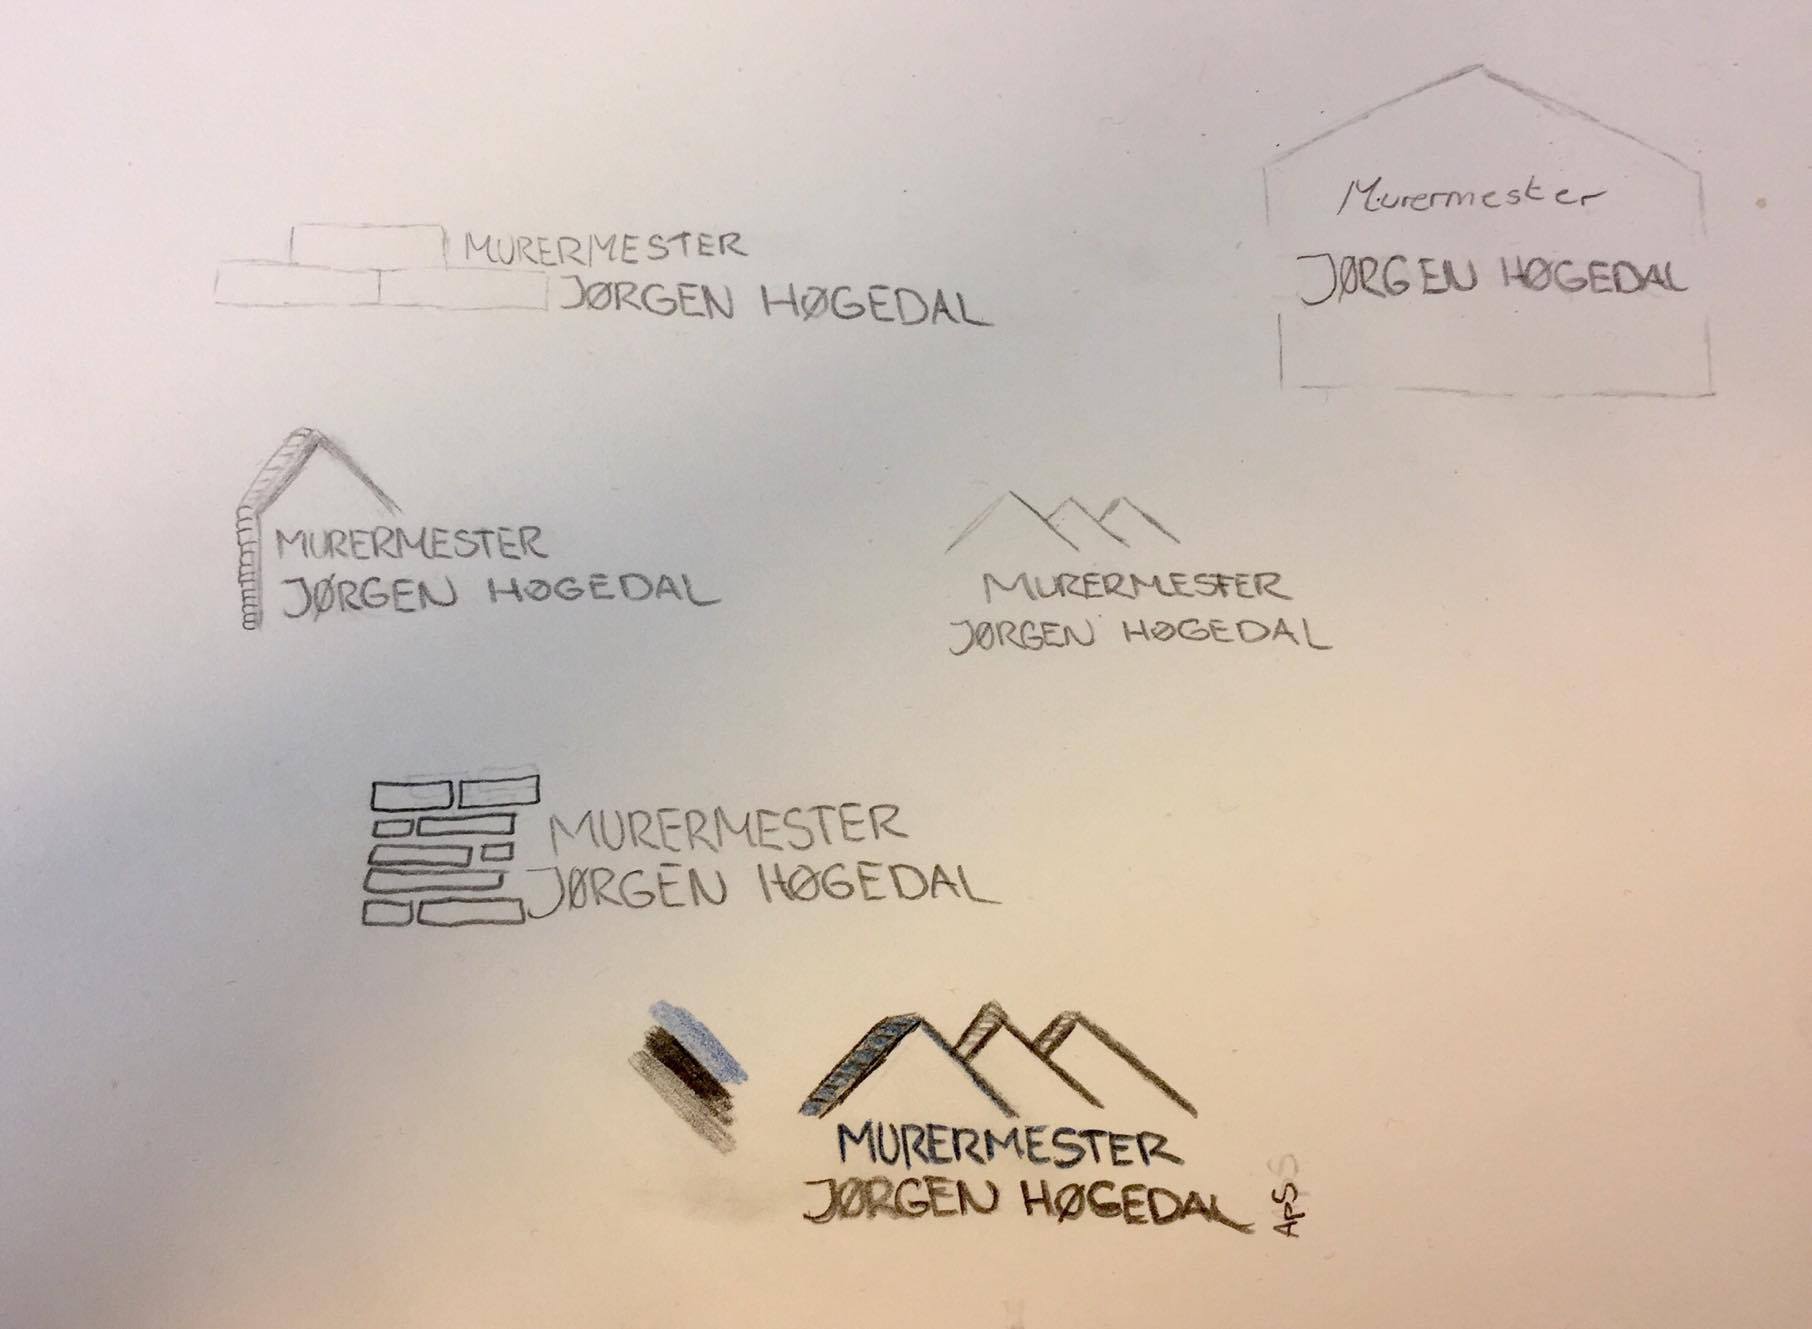 Murermester
JØRGEN HØGEDAL
MURERMESTER
JØRGEN HØGEDAL
MURERMESTER
JØRGEN HØGEDAL
MURERMESTER
JØRGEN HØGEDAL
MURERMESTER
JØRGEN HØGEDAL
MURERMESTER
JØRGEN HØGEDAL APS